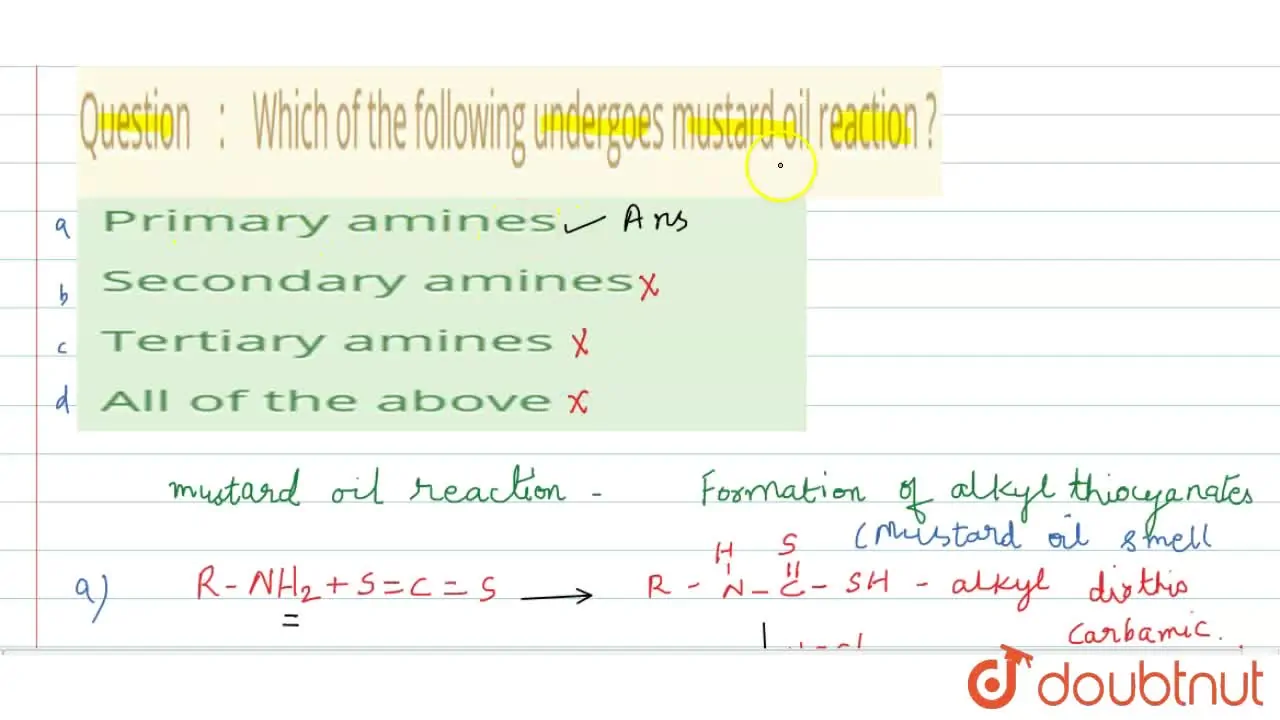 Question : Which of the following undergoes mustard oil reaction ?
a Primary amines ✓ Ans
b Secondary amines X
c Tertiary amines X
d All of the above X
mustard oil reaction - Formation of alkyl thiocyanates
(Mustard oil smell
a) R-NH₂ + S=C=S → R - N - C - SH - alkyl
H S
carbamic.
doubtnut